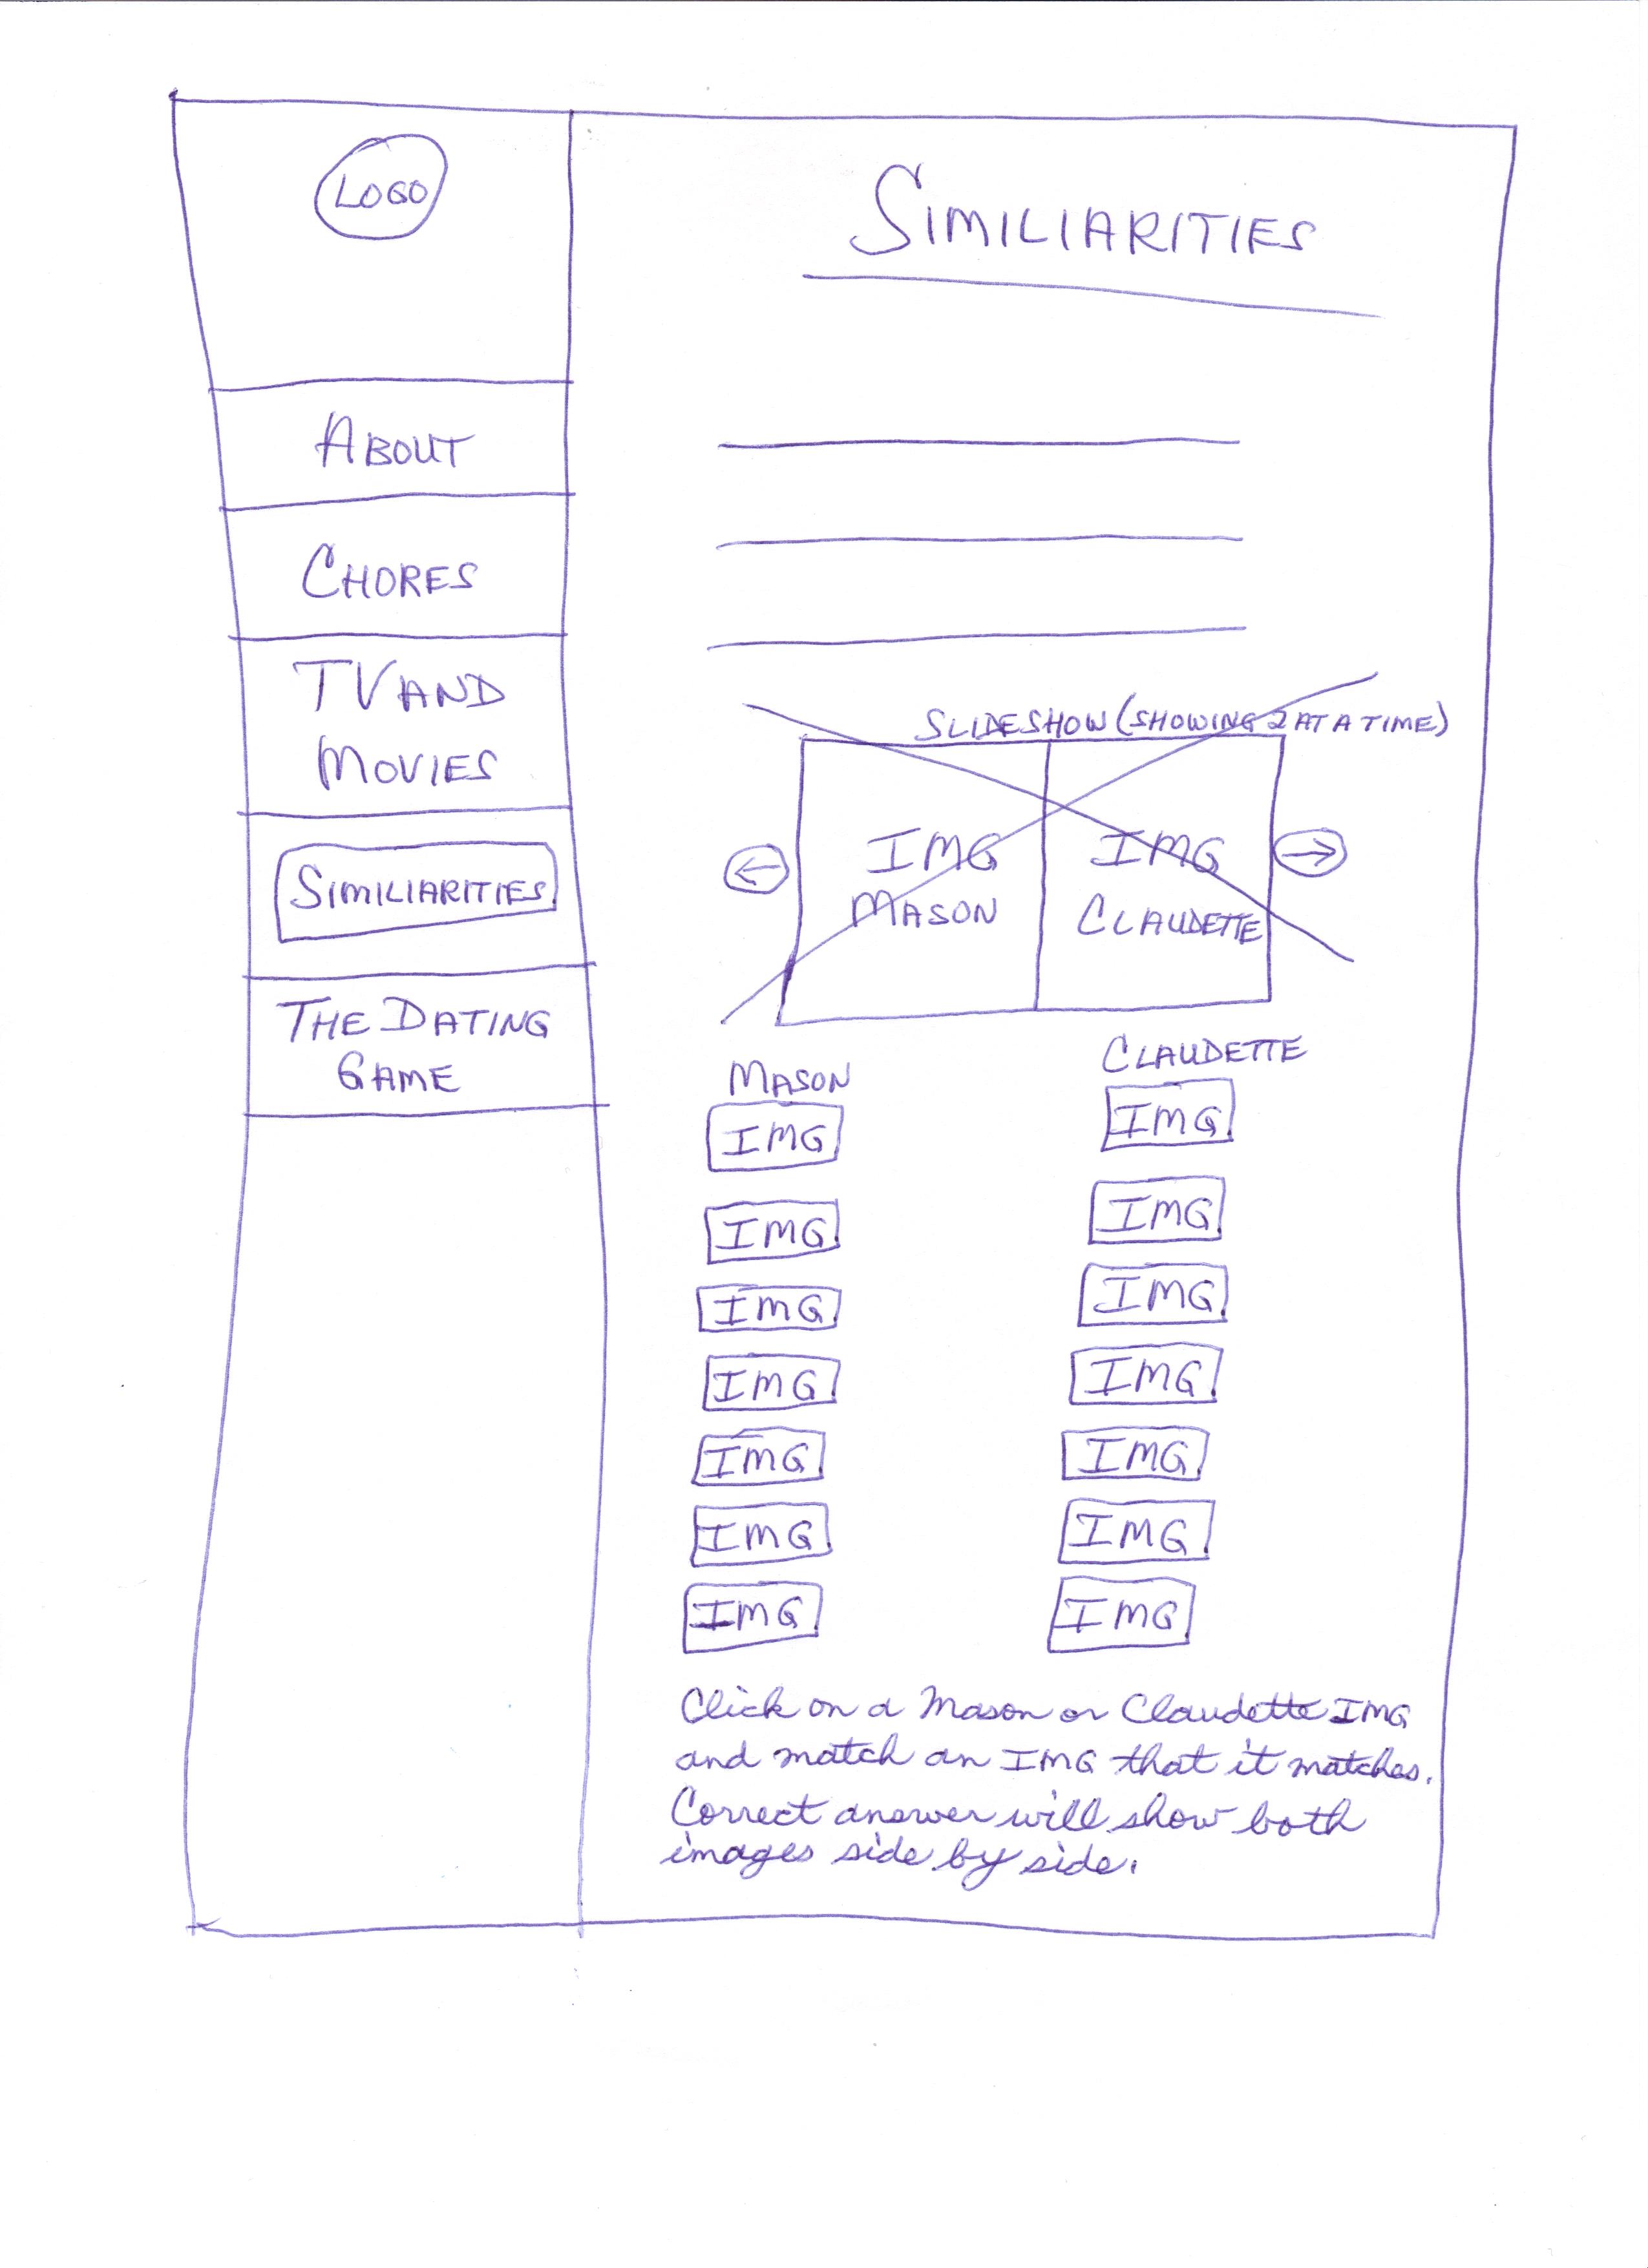 LOGO
ABOUT
CHORES
TV AND
MOVIES
SIMILIARITIES
THE DATING
GAME
SIMILIARITIES
SLIDESHOW (SHOWING 2 AT A TIME)
IMG IMG
MASON CLAUDETTE
MASON CLAUDETTE
IMG IMG
IMG IMG
IMG IMG
IMG IMG
IMG IMG
IMG IMG
IMG IMG
Click on a Mason or Claudette IMG
and match an IMG that it matches.
Correct answer will show both
images side by side.